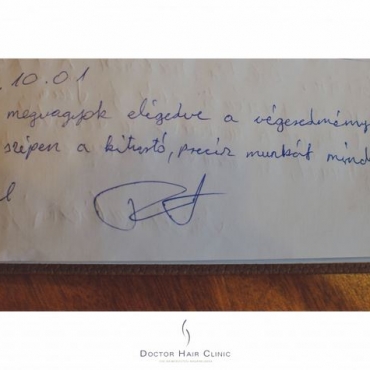 .10.01
megvagyok elégedve a végeredmény
szépen a kitartó, precíz munkát mind
DOCTOR HAIR CLINIC